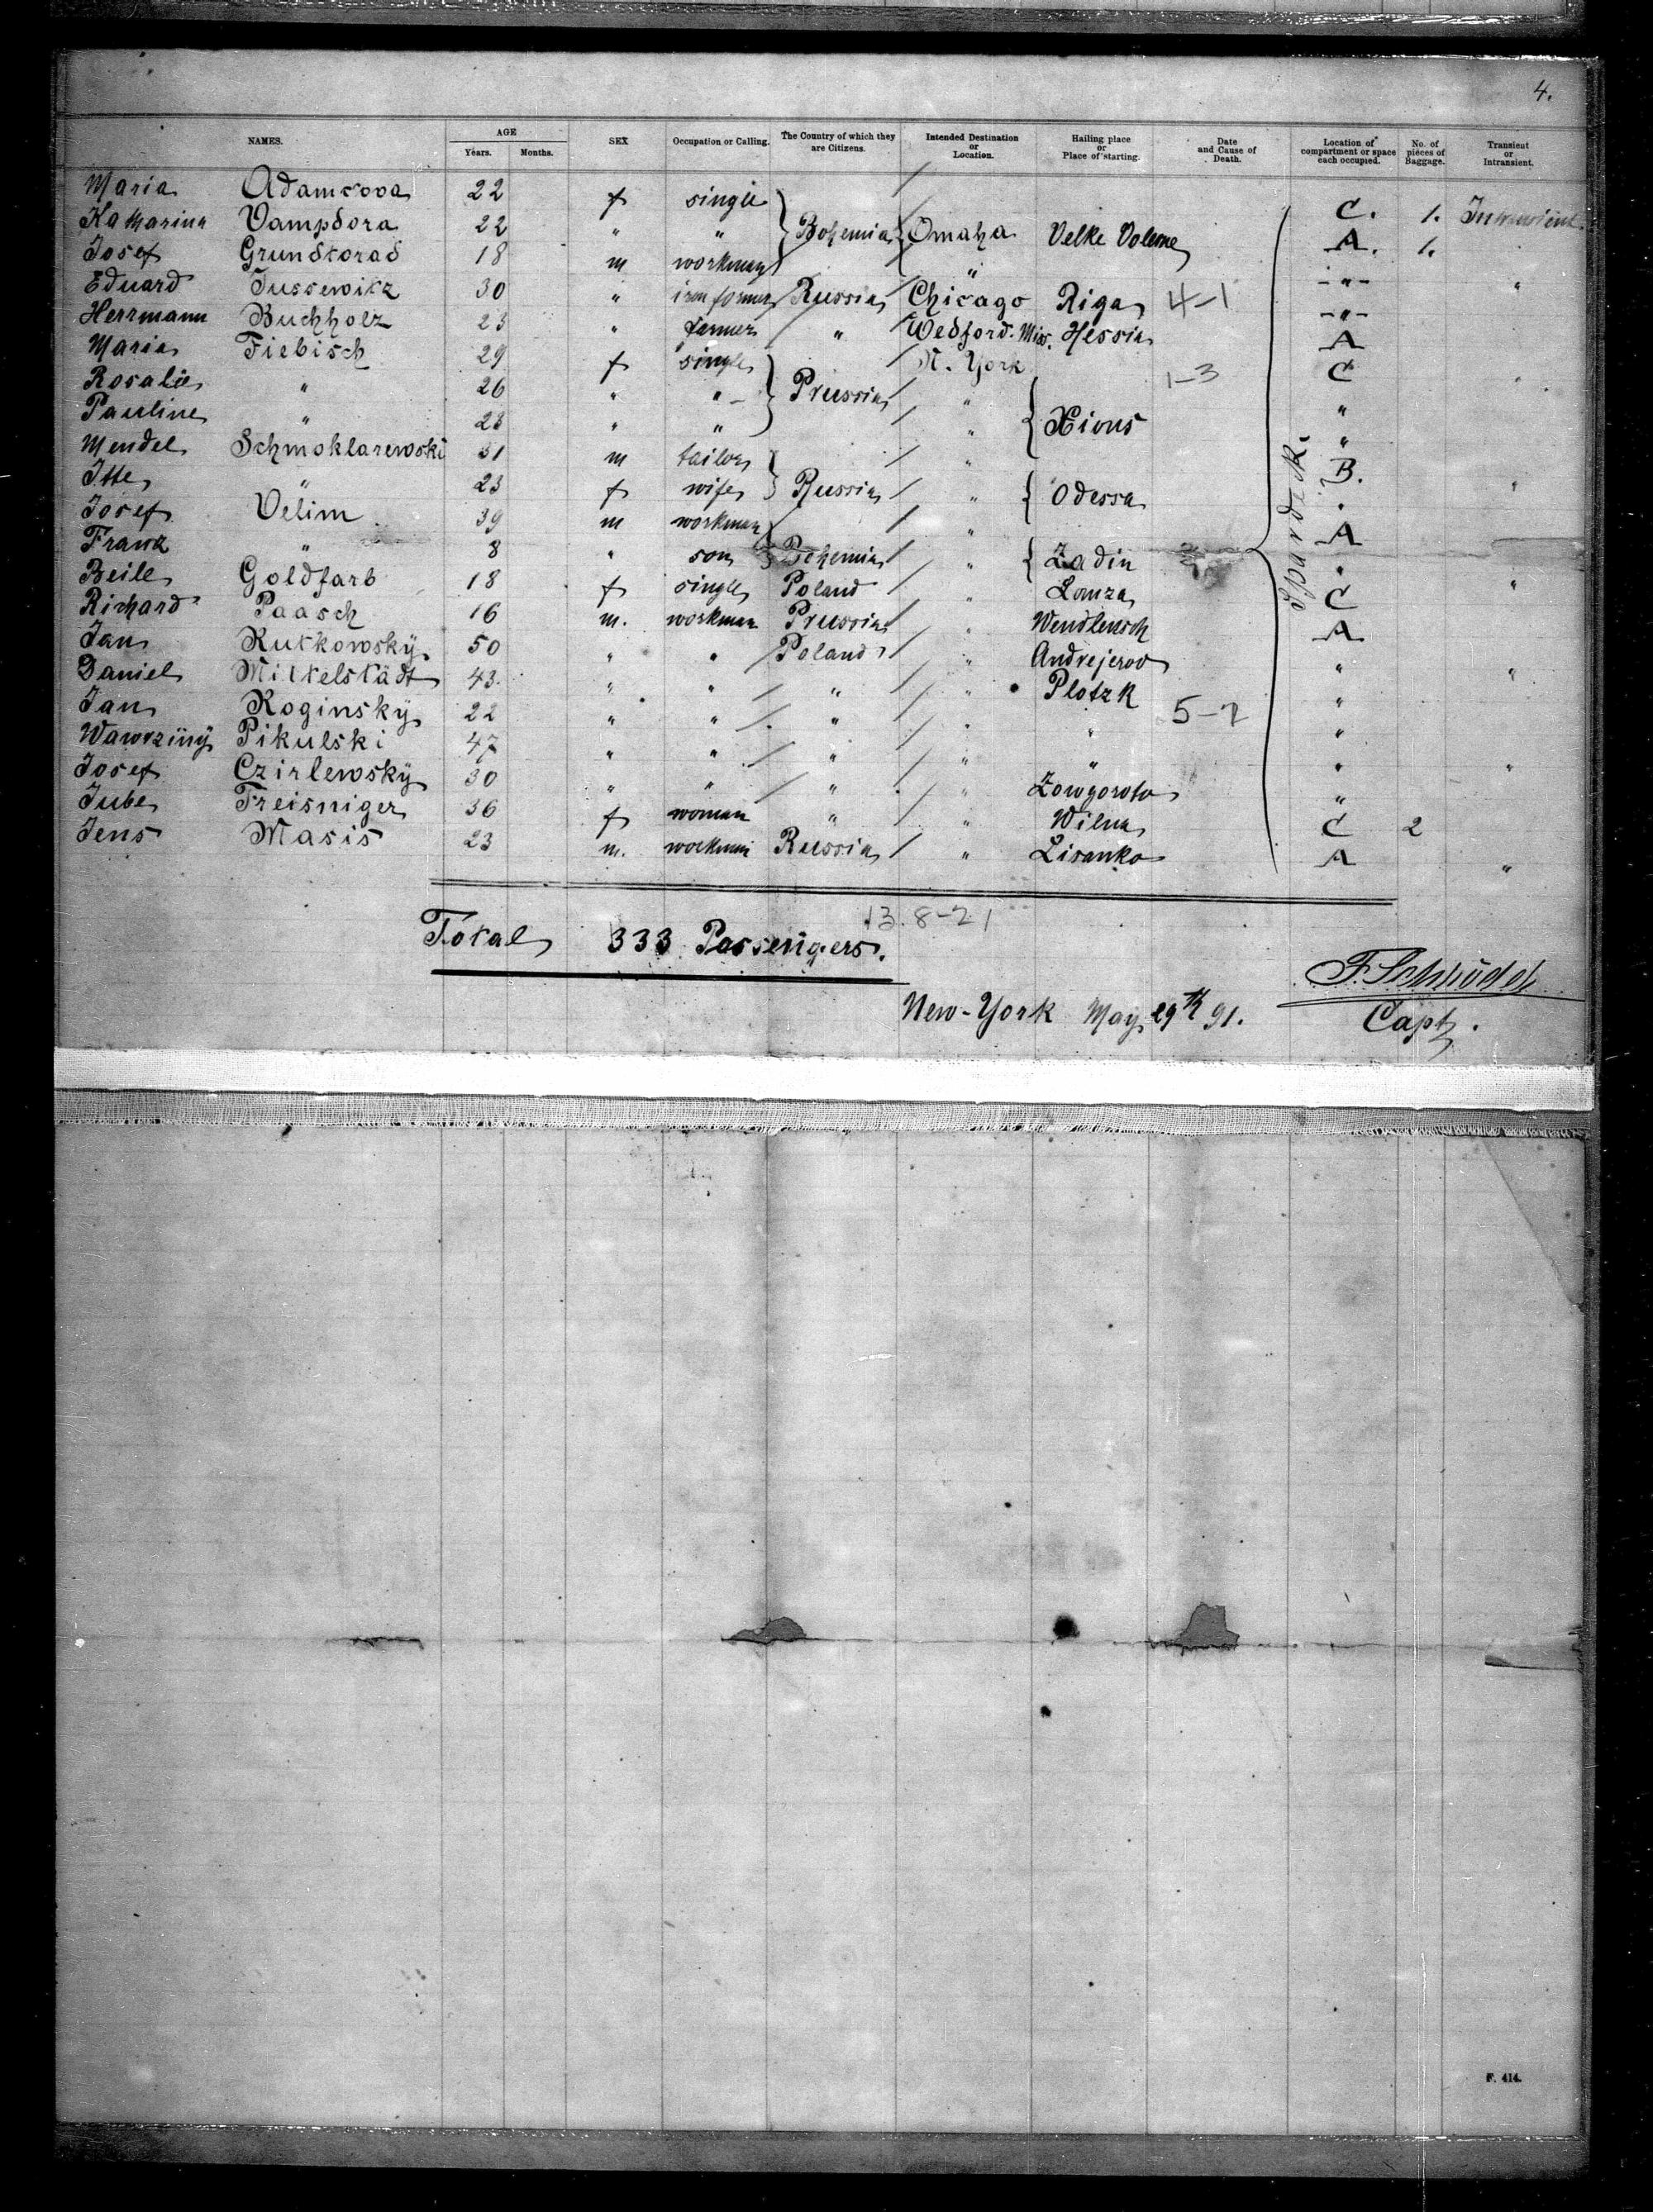 4.
NAMES. AGE Years. Months. SEX Occupation or Calling. The Country of which they are Citizens. Intended Destination or Location. Hailing place or Place of starting. Date and Cause of Death. Location of compartment or space each occupied. No. of pieces of Baggage. Transient or Intransient.
Maria Adamcova 22 f single C. 1.
Katharina Vampdora 22 " " Bohemia Omaha Velke Voleme A. 1.
Josef Grundtorad 18 m workman " -"-
Eduard Jussewitz 30 " Russia Chicago Riga 4-1 -"- "
Herrmann Buchholz 23 " farmer " Medford. Hessin A
Maria Fiebisch 29 f single N. York C
Rosalie " 26 " " Prussia " 1-3 " "
Pauline " 23 " " " Xions "
Mendel Schmoklarewski 31 m tailor " B.
Itte " 23 f wife Russia " Odessa " "
Josef Velim 39 m workman " A
Franz " 8 " son Bohemia " Zadin "
Beile Goldfarb 18 f single Poland " Lomza C "
Richard Paasch 16 m. workman Prussia " Wendlensch A
Jan Rutkowsky 50 " " Poland " Andrejerov "
Daniel Mittelstädt 43 " " " " Plotzk " "
Jan Roginsky 22 " " " " " 5-7 "
Pikulski 47 " " " " " "
Josef Czirlewsky 30 " " " " "
Jube Freisniger 36 f woman " " Wilna C 2
Jens Masis 23 m. workman Russia " Lisanko A "
Spardeck.
13.8-21
Total 333 Passengers.
F. Schröder
New-York May 29th 91. Capt.
F. 414.